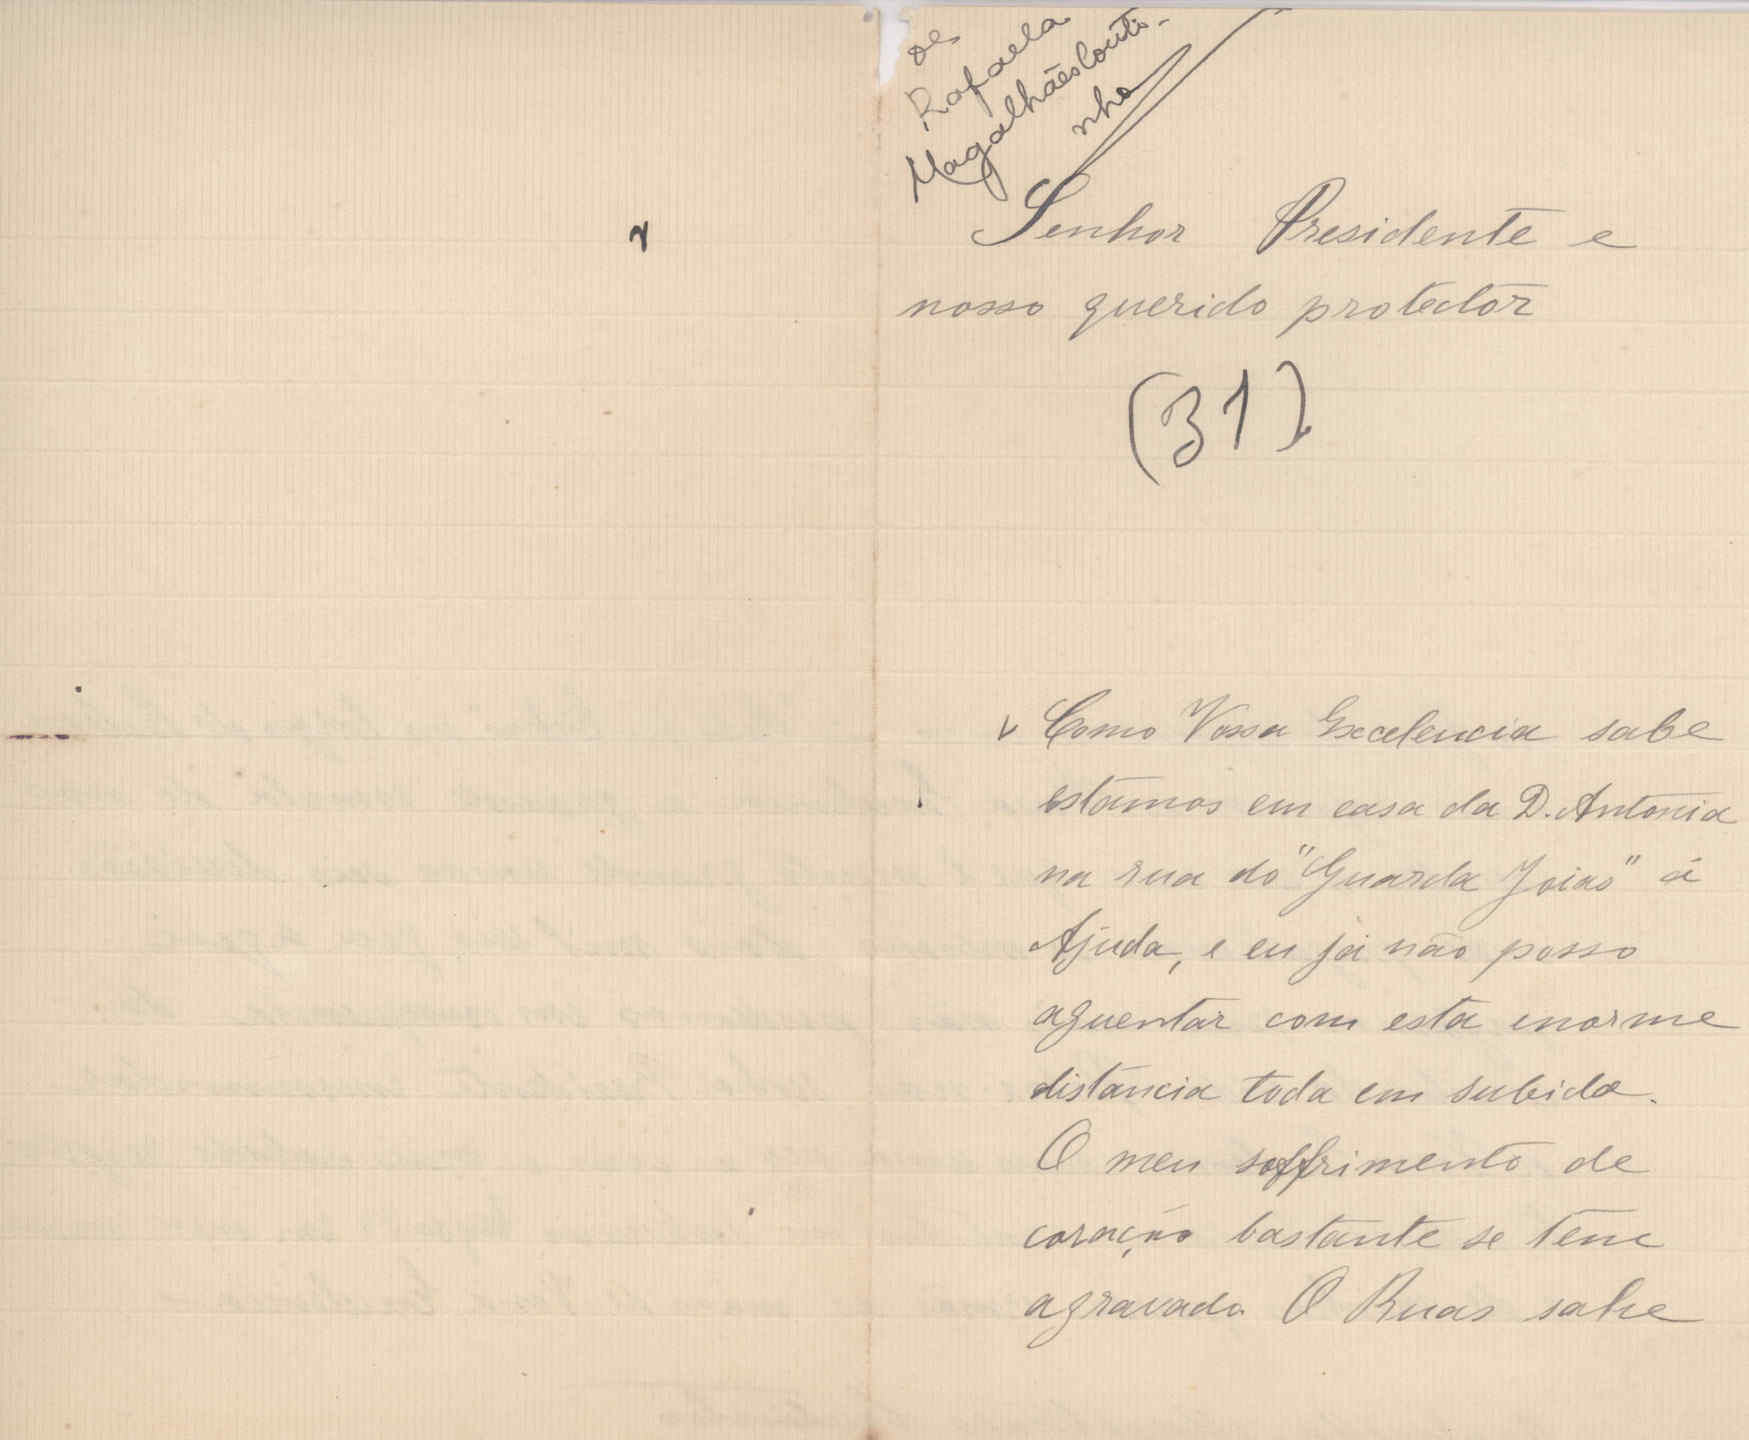 de
Rafaela
Magalhães Couti-
nho
Senhor Presidente e
nosso querido protector
(31)
Como Vossa Excelencia sabe
estâmos em casa da D. Antonia
na rua do "Guarda Joias" á
Ajuda, e eu já não posso
aguentar com esta enorme
distância toda em subida.
O meu soffrimento de
coração bastante se tem
agravado. O Ruas sabe